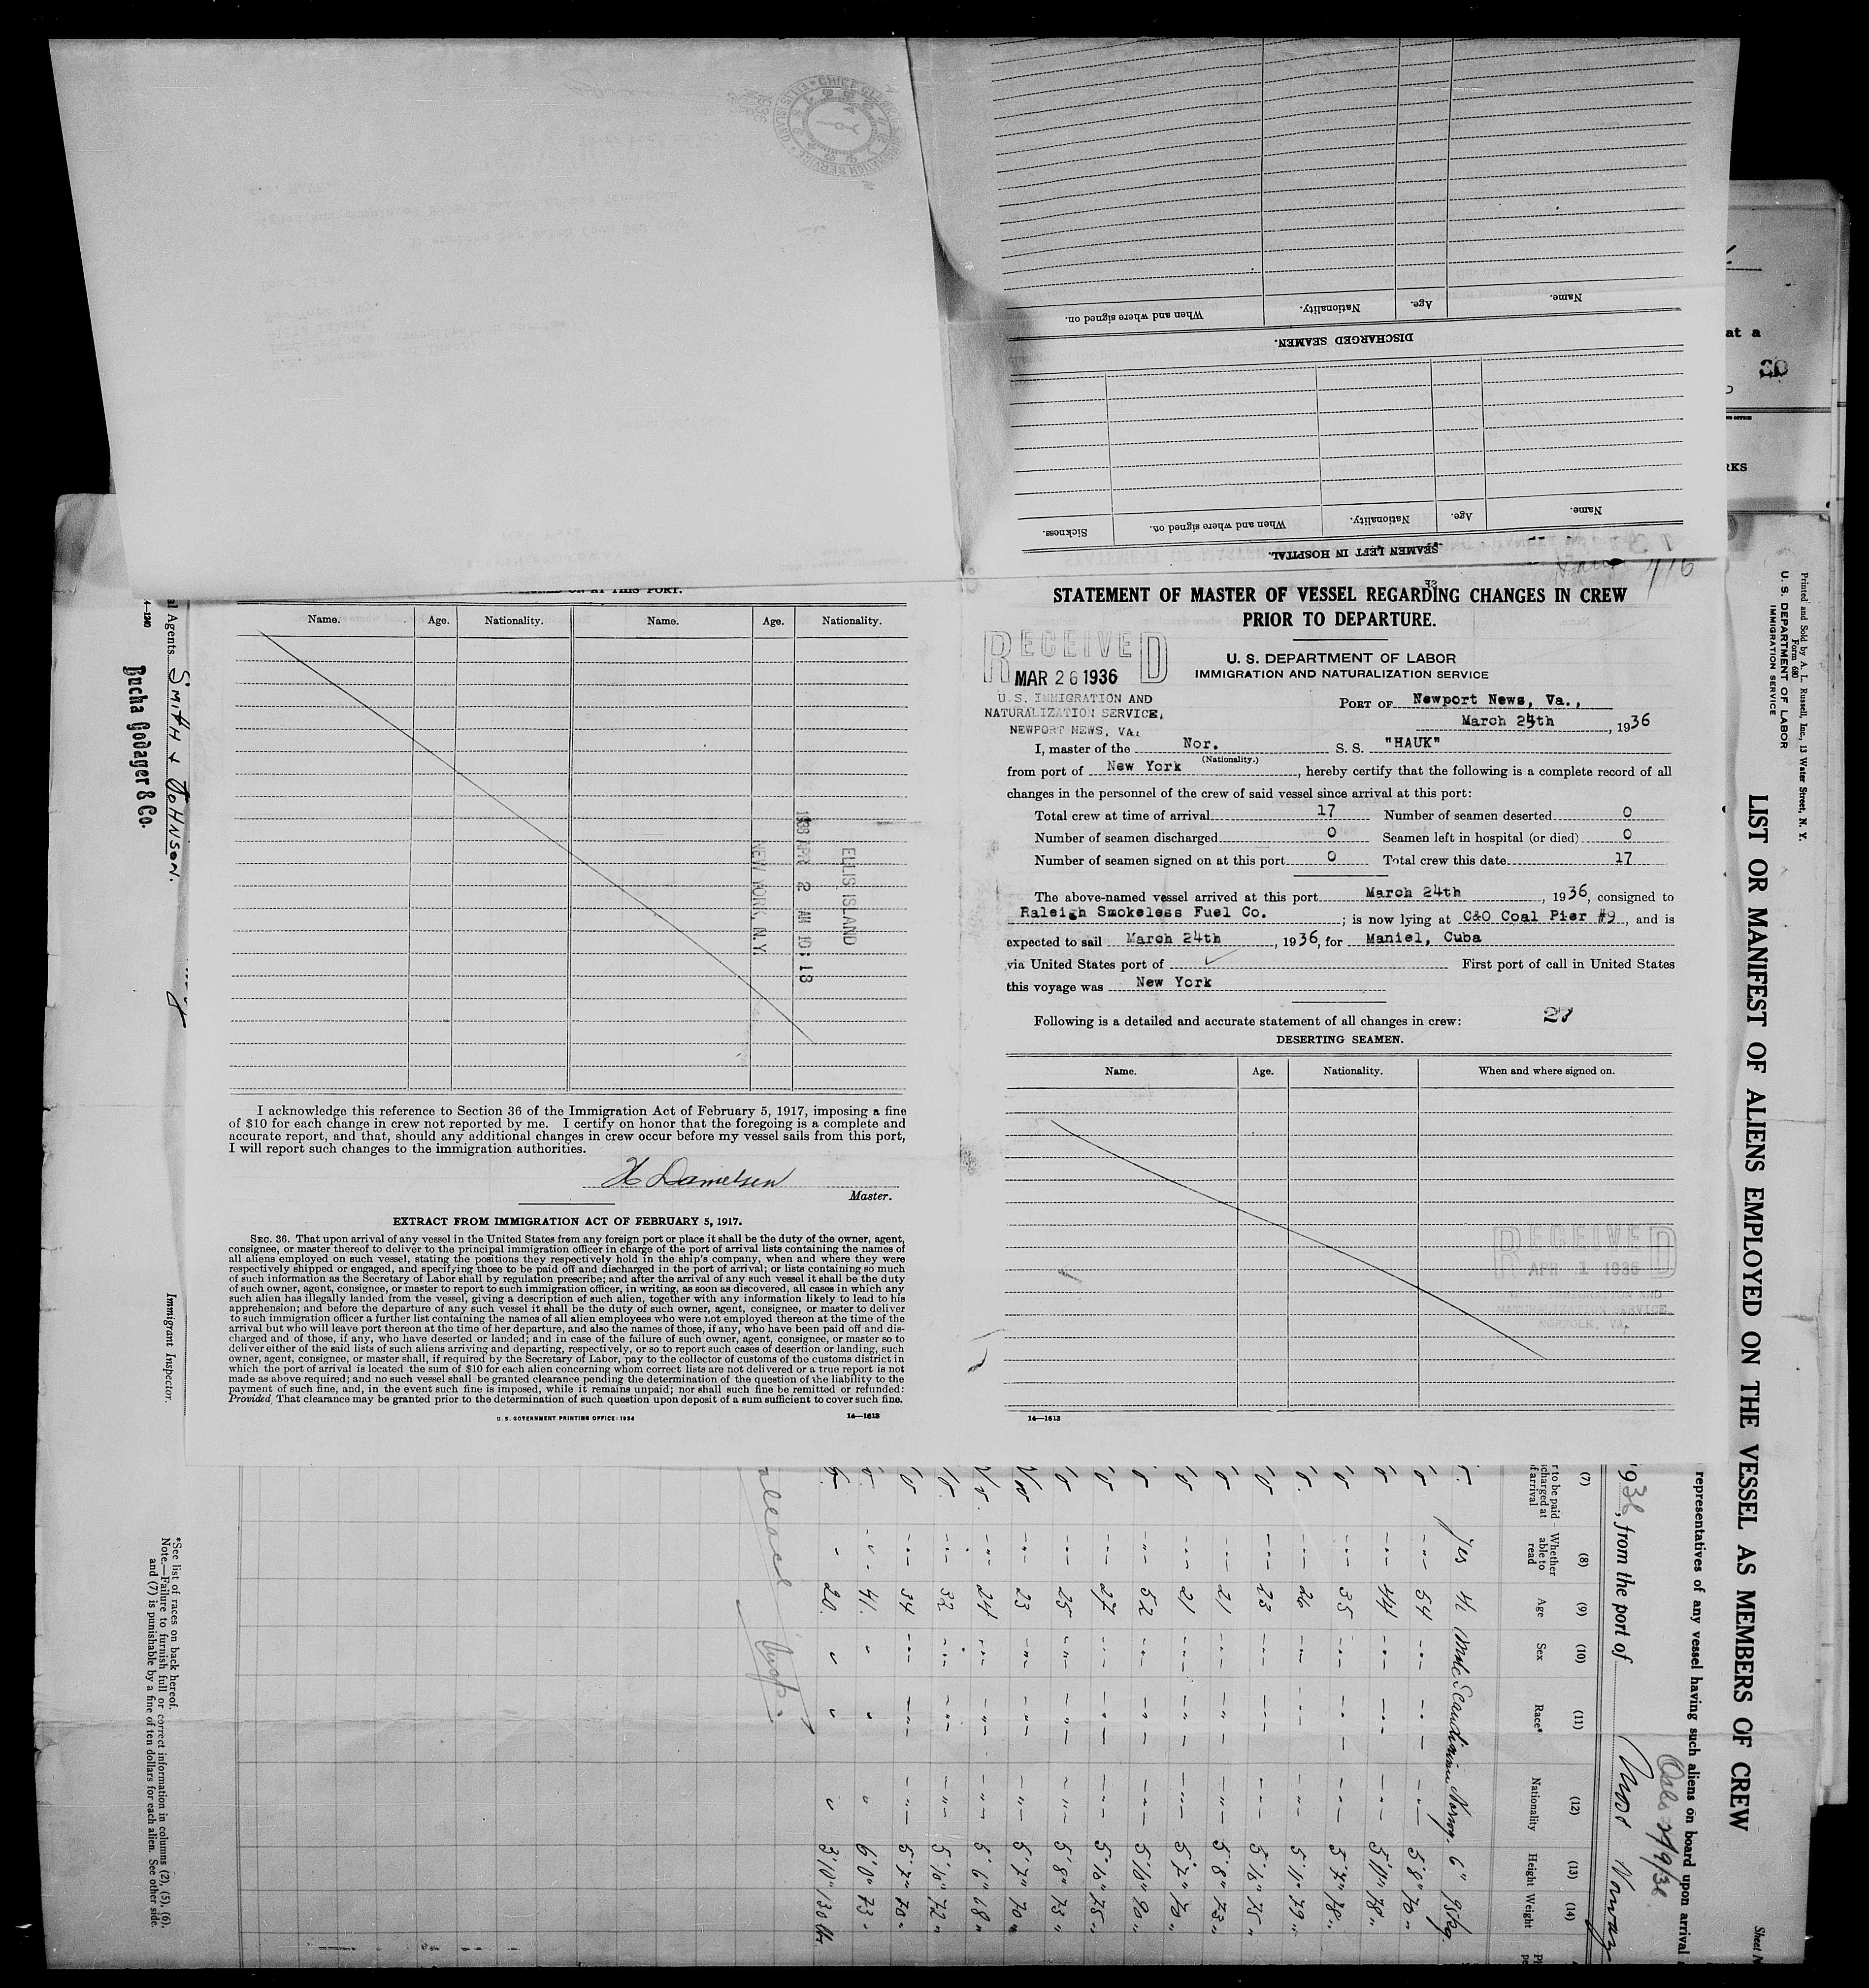 SIGNED ON AT THIS PORT.
Name. Age. Nationality. Name. Age. Nationality.
ELLIS ISLAND
1936 APR 2 AM 10:13
NEW YORK, N.Y.
I acknowledge this reference to Section 36 of the Immigration Act of February 5, 1917, imposing a fine
of $10 for each change in crew not reported by me. I certify on honor that the foregoing is a complete and
accurate report, and that, should any additional changes in crew occur before my vessel sails from this port,
I will report such changes to the immigration authorities.
H Danielsen
Master.
EXTRACT FROM IMMIGRATION ACT OF FEBRUARY 5, 1917.
SEC. 36. That upon arrival of any vessel in the United States from any foreign port or place it shall be the duty of the owner, agent,
consignee, or master thereof to deliver to the principal immigration officer in charge of the port of arrival lists containing the names of
all aliens employed on such vessel, stating the positions they respectively hold in the ship's company, when and where they were
respectively shipped or engaged, and specifying those to be paid off and discharged in the port of arrival; or lists containing so much
of such information as the Secretary of Labor shall by regulation prescribe; and after the arrival of any such vessel it shall be the duty
of such owner, agent, consignee, or master to report to such immigration officer, in writing, as soon as discovered, all cases in which any
such alien has illegally landed from the vessel, giving a description of such alien, together with any information likely to lead to his
apprehension; and before the departure of any such vessel it shall be the duty of such owner, agent, consignee, or master to deliver
to such immigration officer a further list containing the names of all alien employees who were not employed thereon at the time of the
arrival but who will leave port thereon at the time of her departure, and also the names of those, if any, who have been paid off and dis-
charged and of those, if any, who have deserted or landed; and in case of the failure of such owner, agent, consignee, or master so to
deliver either of the said lists of such aliens arriving and departing, respectively, or so to report such cases of desertion or landing, such
owner, agent, consignee, or master shall, if required by the Secretary of Labor, pay to the collector of customs of the customs district in
which the port of arrival is located the sum of $10 for each alien concerning whom correct lists are not delivered or a true report is not
made as above required; and no such vessel shall be granted clearance pending the determination of the question of the liability to the
payment of such fine, and, in the event such fine is imposed, while it remains unpaid; nor shall such fine be remitted or refunded:
Provided, That clearance may be granted prior to the determination of such question upon deposit of a sum sufficient to cover such fine.
U. S. GOVERNMENT PRINTING OFFICE: 1934 14—1613
SEAMEN LEFT IN HOSPITAL.
Name. Age. Nationality. When and where signed on. Sickness.
DISCHARGED SEAMEN.
Name. Age. Nationality. When and where signed on.
STATEMENT OF MASTER OF VESSEL REGARDING CHANGES IN CREW
PRIOR TO DEPARTURE.
U. S. DEPARTMENT OF LABOR
IMMIGRATION AND NATURALIZATION SERVICE
RECEIVED
MAR 26 1936
U.S. IMMIGRATION AND
NATURALIZATION SERVICE,
NEWPORT NEWS, VA.
PORT OF Newport News, Va.,
March 24th, 1936
I, master of the Nor. S. S. "HAUK"
(Nationality.)
from port of New York, hereby certify that the following is a complete record of all
changes in the personnel of the crew of said vessel since arrival at this port:
Total crew at time of arrival 17 Number of seamen deserted 0
Number of seamen discharged 0 Seamen left in hospital (or died) 0
Number of seamen signed on at this port 0 Total crew this date 17
The above-named vessel arrived at this port March 24th, 1936, consigned to
Raleigh Smokeless Fuel Co.; is now lying at C&O Coal Pier #9, and is
expected to sail March 24th, 1936, for Maniel, Cuba
via United States port of First port of call in United States
this voyage was New York
Following is a detailed and accurate statement of all changes in crew: 27
DESERTING SEAMEN.
Name. Age. Nationality. When and where signed on.
RECEIVED
APR 1 1936
U.S. IMMIGRATION AND
NATURALIZATION SERVICE,
NORFOLK, VA.
14—1613
Printed and Sold by A. L. Russell, Inc., 13 Water Street, N. Y.
Form 680
U. S. DEPARTMENT OF LABOR
IMMIGRATION SERVICE
LIST OR MANIFEST OF ALIENS EMPLOYED ON THE VESSEL AS MEMBERS OF CREW
representatives of any vessel having such aliens on board upon arrival
1936, from the port of Moss Norway
(7) (8) (9) (10) (11) (12) (13) (14)
Whether able to read Age Sex Race* Nationality Height Weight
yes 41 Male Scandinavian Norway. 6" 95kg.
54 5'8" 70"
44 5'11" 78"
35 5'7" 78"
26 5'11" 79"
23 5'6" 75"
21 5'8" 73"
21 5'7" 70"
52 5'8" 90"
27 5'10" 75"
25 5'8" 73"
23 5'7" 70"
24 5'6" 68"
32 5'10" 72"
34 5'7" 70"
41. 6'0" 73"
20.
Agents SMITH & JOHNSON.
Bucha Godager & Co.
Immigrant Inspector.
*See list of races on back hereof.
Note.—Failure to furnish full or correct information in columns (2), (5), (6),
and (7) is punishable by a fine of ten dollars for each alien. See other side.